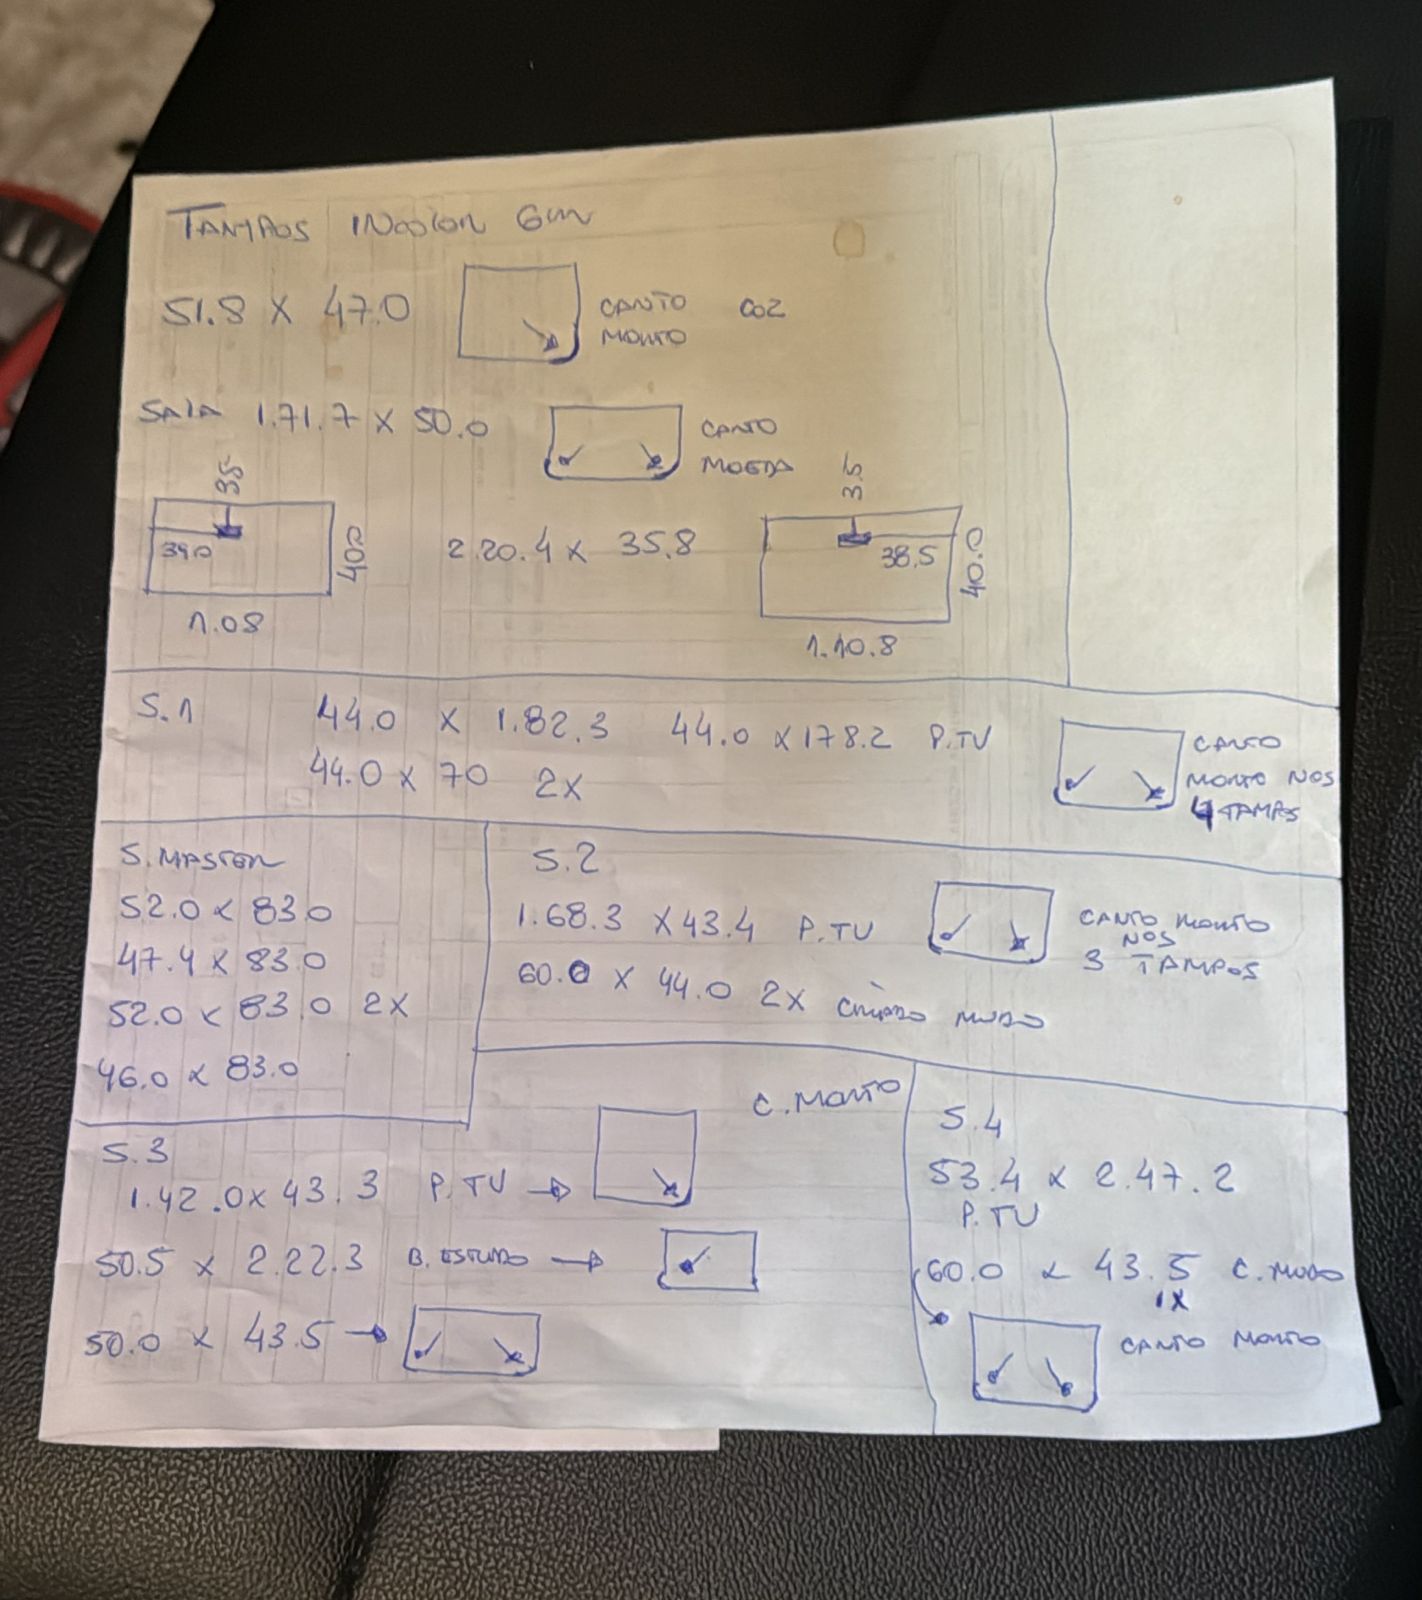 TAMPOS INCOLOR 6m
51.8 X 47.0
CANTO
MORTO
COZ
SALA 1.71.7 X 50.0
CANTO
MOEDA
3.5
39.0
40.0
1.08
2.20.4 X 35.8
3.5
38.5
40.0
1.10.8
S.1
44.0 X 1.82.3
44.0 X 178.2 P.TV
44.0 X 70 2X
CANTO
MORTO NOS
4 TAMPS
S. MASTER
52.0 X 83.0
47.4 X 83.0
52.0 X 83.0 2X
46.0 X 83.0
S.2
1.68.3 X 43.4 P.TV
60.0 X 44.0 2X CRIADO MUDO
CANTO MORTO
NOS
3 TAMPOS
C. MORTO
S.3
1.42.0 X 43.3 P.TV
50.5 X 2.22.3 B. ESTUDO
50.0 X 43.5
S.4
53.4 X 2.47.2
P.TV
60.0 X 43.5 C. MUDO
1X
CANTO MORTO